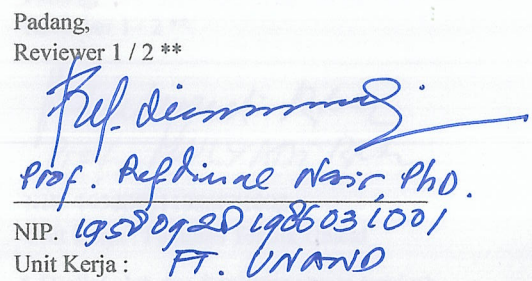 Padang,
Reviewer 1 / 2 **
Prof. Refdinal Nasir, PhD.
NIP. 195809281986031001
Unit Kerja : FT. UNAND